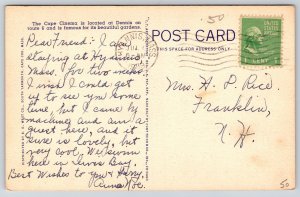 50
The Cape Cinema is located at Dennis on
route 6 and is famous for its decorations.
POST CARD
THIS SPACE FOR ADDRESS ONLY
UNITED STATES
1 CENT
Dear friend: I am
staying at Hyannis
Mass. for two weeks
I wish I could get
up to see you some
time, but I came by
machine and am a
guest here, and it
sure is lovely, but
very cool. We swim
here in Lewis Bay.
Best Wishes to you & Harry.
Mrs. H. P. Rice.
Franklin,
N. H.
50